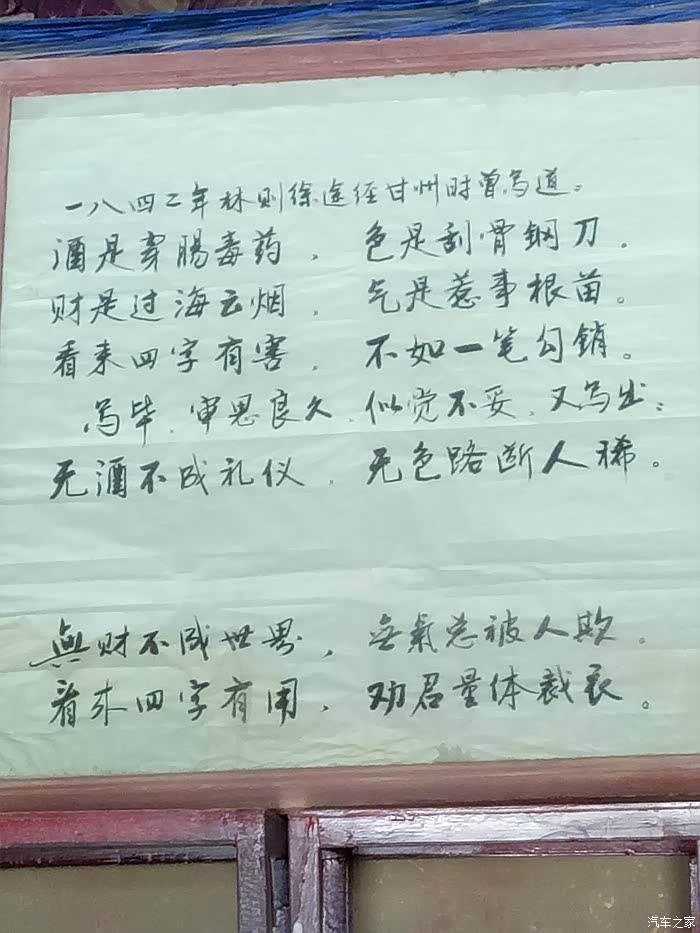 一八四二年林则徐途经甘州时曾写道:
酒是穿肠毒药，色是刮骨钢刀．
财是过海云烟，气是惹事根苗。
看来四字有害，不如一笔勾销。
写毕．审思良久．似觉不妥．又写出:
无酒不成礼仪．无色路断人稀。
無财不成世界，無氣总被人欺．
看来四字有用，劝君量体裁衣。
汽车之家